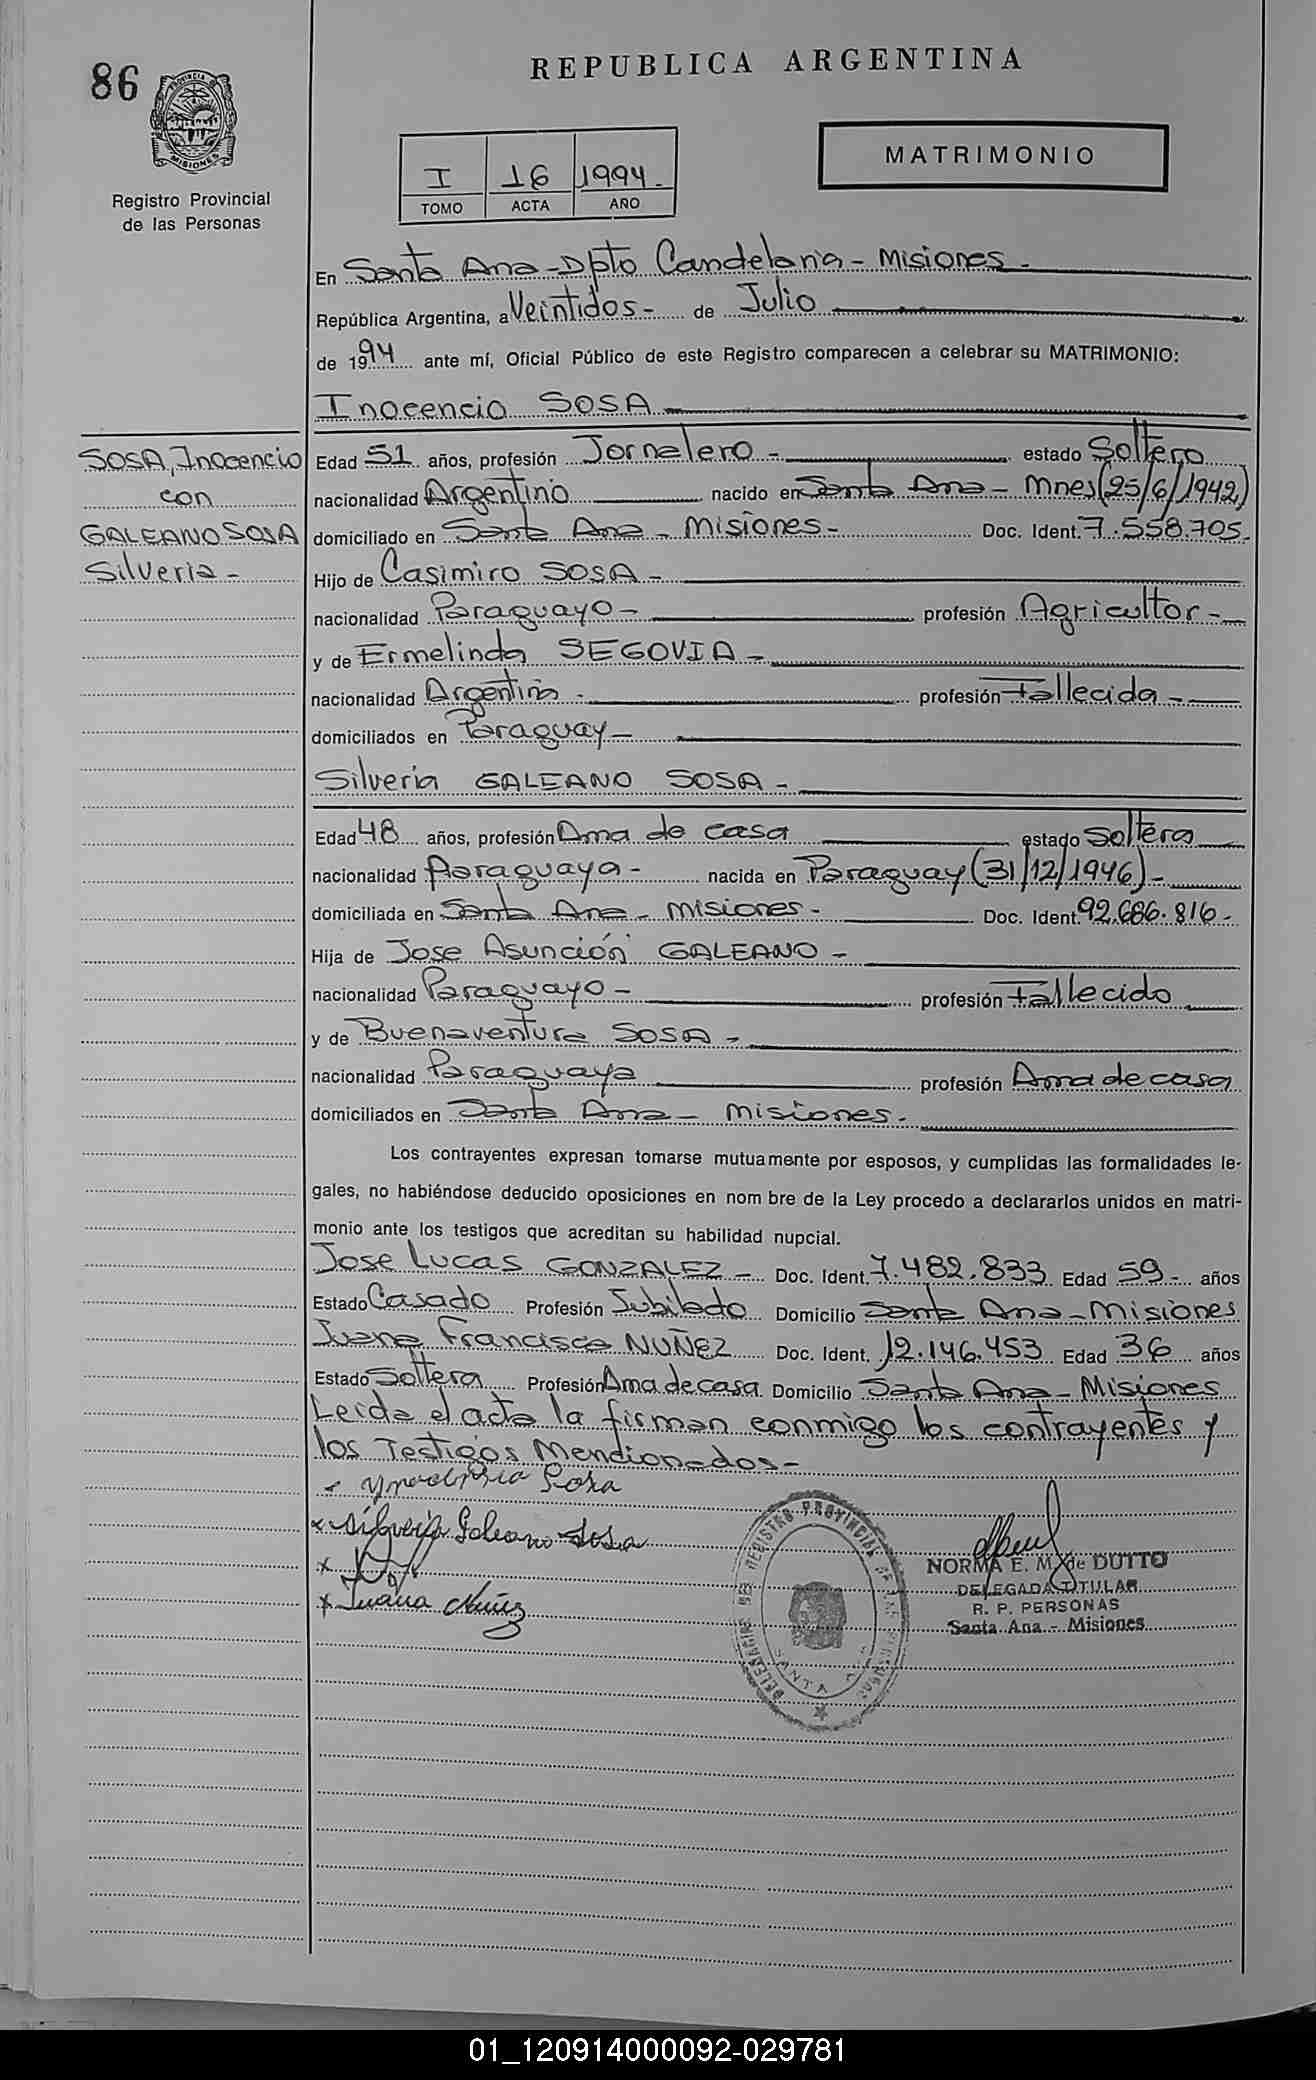 86
REPUBLICA ARGENTINA
PROVINCIA DE MISIONES
Registro Provincial
de las Personas
I 16 1994.-
TOMO ACTA AÑO
MATRIMONIO
En Santa Ana - Dpto Candelaria - Misiones -
República Argentina, a Veintidos - de Julio
de 1994 ante mí, Oficial Público de este Registro comparecen a celebrar su MATRIMONIO:
Inocencio SOSA
SOSA, Inocencio
con
GALEANO SOSA
Silveria -
Edad 51 años, profesión Jornalero - estado Soltero
nacionalidad Argentino nacido en Santa Ana - Mnes (25/6/1942)
domiciliado en Santa Ana - Misiones - Doc. Ident. 7.558.705-
Hijo de Casimiro SOSA -
nacionalidad Paraguayo - profesión Agricultor -
y de Ermelinda SEGOVIA -
nacionalidad Argentina - profesión Fallecida -
domiciliados en Paraguay -
Silveria GALEANO SOSA -
Edad 48 años, profesión Ama de casa estado Soltera
nacionalidad Paraguaya - nacida en Paraguay (31/12/1946) -
domiciliada en Santa Ana - Misiones - Doc. Ident. 92.686.816-
Hija de Jose Asunción GALEANO -
nacionalidad Paraguayo - profesión Fallecido
y de Buenaventura SOSA -
nacionalidad Paraguaya profesión Ama de casa
domiciliados en Santa Ana - Misiones -
Los contrayentes expresan tomarse mutuamente por esposos, y cumplidas las formalidades le-
gales, no habiéndose deducido oposiciones en nom bre de la Ley procedo a declararlos unidos en matri-
monio ante los testigos que acreditan su habilidad nupcial.
Jose Lucas GONZALEZ - Doc. Ident. 7.482.833 Edad 59- años
Estado Casado Profesión Jubilado Domicilio Santa Ana - Misiones
Juana Francisca NUÑEZ Doc. Ident. 12.146.453 Edad 36 años
Estado Soltera Profesión Ama de casa Domicilio Santa Ana - Misiones
Leida el acta la firman conmigo los contrayentes y
los Testigos Mencionados -
Sosa
x Silveria Galeano Sosa
x
x Juana Nuñez
DELEGACION DEL REGISTRO PROVINCIAL DE LAS PERSONAS
SANTA ANA
NORMA E. M. de DUTTO
DELEGADA TITULAR
R. P. PERSONAS
Santa Ana - Misiones
01_120914000092-029781